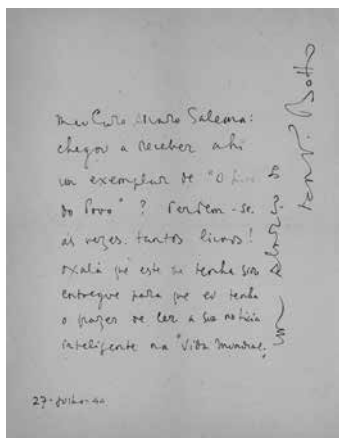 Meu Caro Alvaro Salema:
chegou a receber ahi
um exemplar de "O Livro
do Povo"? Perdem-se
ás vezes tantos livros!
Oxalá que este lhe tenha sido
entregue para que eu tenha
o prazer de ler a sua noticia
inteligente na "Vida Mundial".
um abraço do
Botto
27-Julho-40